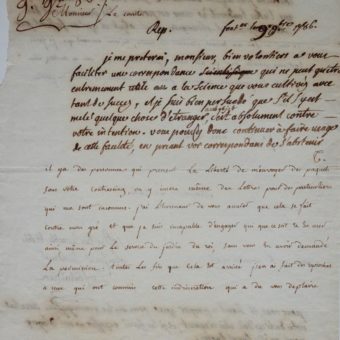 Monsieur Le comte
Rep.
je me preterai, monsieur, bien volontiers a vous
faciliter une correspondance scientifique qui ne peut qu'etre
extremement utile a la Science que vous cultivés avec
tant de succes, et je suis bien persuadé que s'il s'y est
melé quelque chose d'etranger, c'est absolument contre
votre intention. vous pouvés donc continuer à faire usage
de cette faculté, en priant vos correspondans de s'abstenir
il y a des personnes qui prennent la Liberté de m'envoyer des paquets
sous votre contreseing, on y insere même des Lettres pour des particuliers
qui me sont inconnus. j'ai l'honneur de vous assurer que cela se fait
contre mon gré et que je suis incapable d'engager qui que ce soit à le
ainsi même pour le service du jardin du roi, sans vous en avoir demandé
La permission. toutes Les fois que cela est arrivé j'en ai fait des reproches
à ceux qui ont commis cette indiscretion qui a du vous deplaire